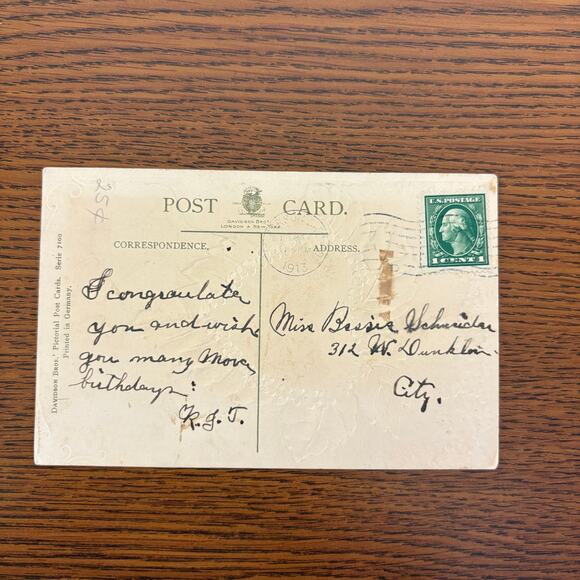 25¢
POST CARD.
DAVIDSON BROS.
LONDON & NEW YORK
CORRESPONDENCE.
ADDRESS.
1913
U.S. POSTAGE
1 CENT 1
DAVIDSON BROS.' Pictorial Post Cards. Serie 7160
Printed in Germany.
I congraulate
you and wish
you many More
birthdays.
K.J.T.
Miss Bessie Schneider
312 W. Dunklin
City.